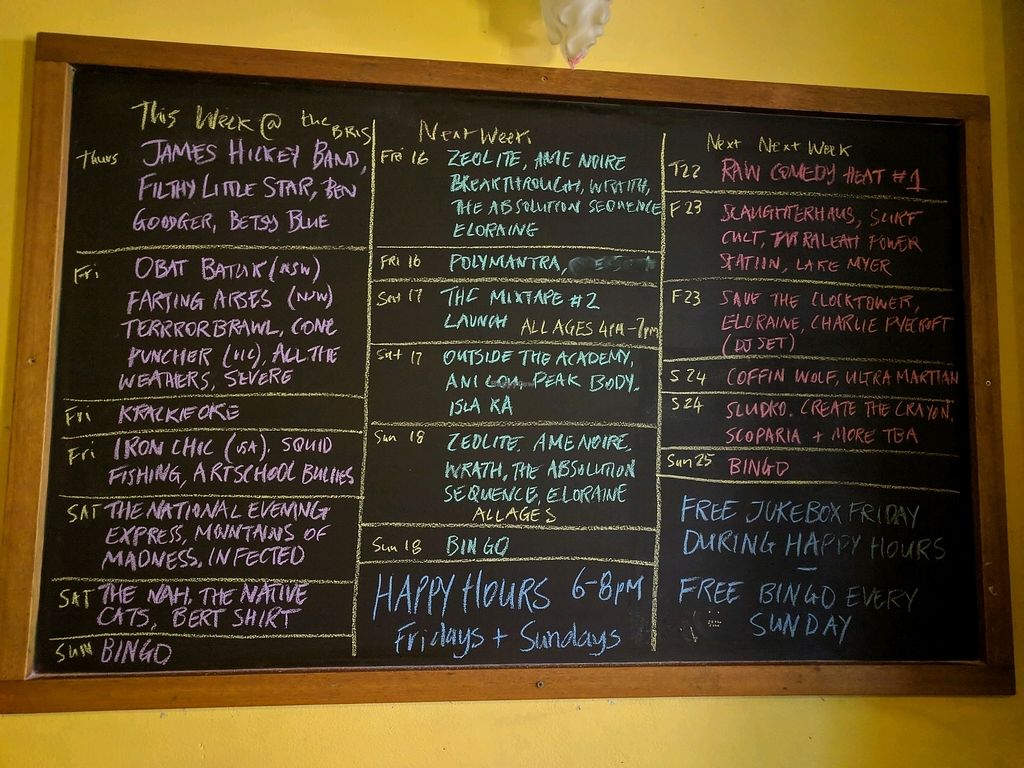 This Week @ the BRIS
Thurs JAMES HICKEY BAND,
FILTHY LITTLE STAR, BEN
GOODGER, BETSY BLUE
Fri OBAT BATUK (NSW)
FARTING ARSES (NSW)
TERRRORBRAWL, CONE
PUNCHER (VIC), ALL THE
WEATHERS, SEVERE
Fri KRACKIEOKE
Fri IRON CHIC (USA), SQUID
FISHING, ARTSCHOOL BULLIES
SAT THE NATIONAL EVENING
EXPRESS, MOUNTAINS OF
MADNESS, INFECTED
SAT THE NAH, THE NATIVE
CATS, BERT SHIRT
SUN BINGO
Next Week
Fri 16 ZEOLITE, AME NOIRE
BREAKTHROUGH, WRAITH,
THE ABSOLUTION SEQUENCE
ELORAINE
FRI 16 POLYMANTRA,
Sat 17 THC MIXTAPE #2
LAUNCH ALL AGES 4PM-7pm
Sat 17 OUTSIDE THE ACADEMY,
ANI LOU, PEAK BODY,
ISLA KA
Sun 18 ZEOLITE, AME NOIRE,
WRATH, THE ABSOLUTION
SEQUENCE, ELORAINE
ALL AGES
Sun 18 BINGO
HAPPY HOURS 6-8pm
Fridays + Sundays
Next Next Week
T22 RAW COMEDY HEAT #1
F 23 SLAUGHTERHAUS, SURF
CULT, TARRALEAH POWER
STATION, LAKE MYER
F23 SAVE THE CLOCKTOWER,
ELORAINE, CHARLIE PYECROFT
(DJ SET)
S 24 COFFIN WOLF, ULTRA MARTIAN
S24 SLUDKO, CREATE THE CRAYON,
SCOPARIA + MORE TBA
Sun 25 BINGO
FREE JUKEBOX FRIDAY
DURING HAPPY HOURS
-
FREE BINGO EVERY
SUNDAY